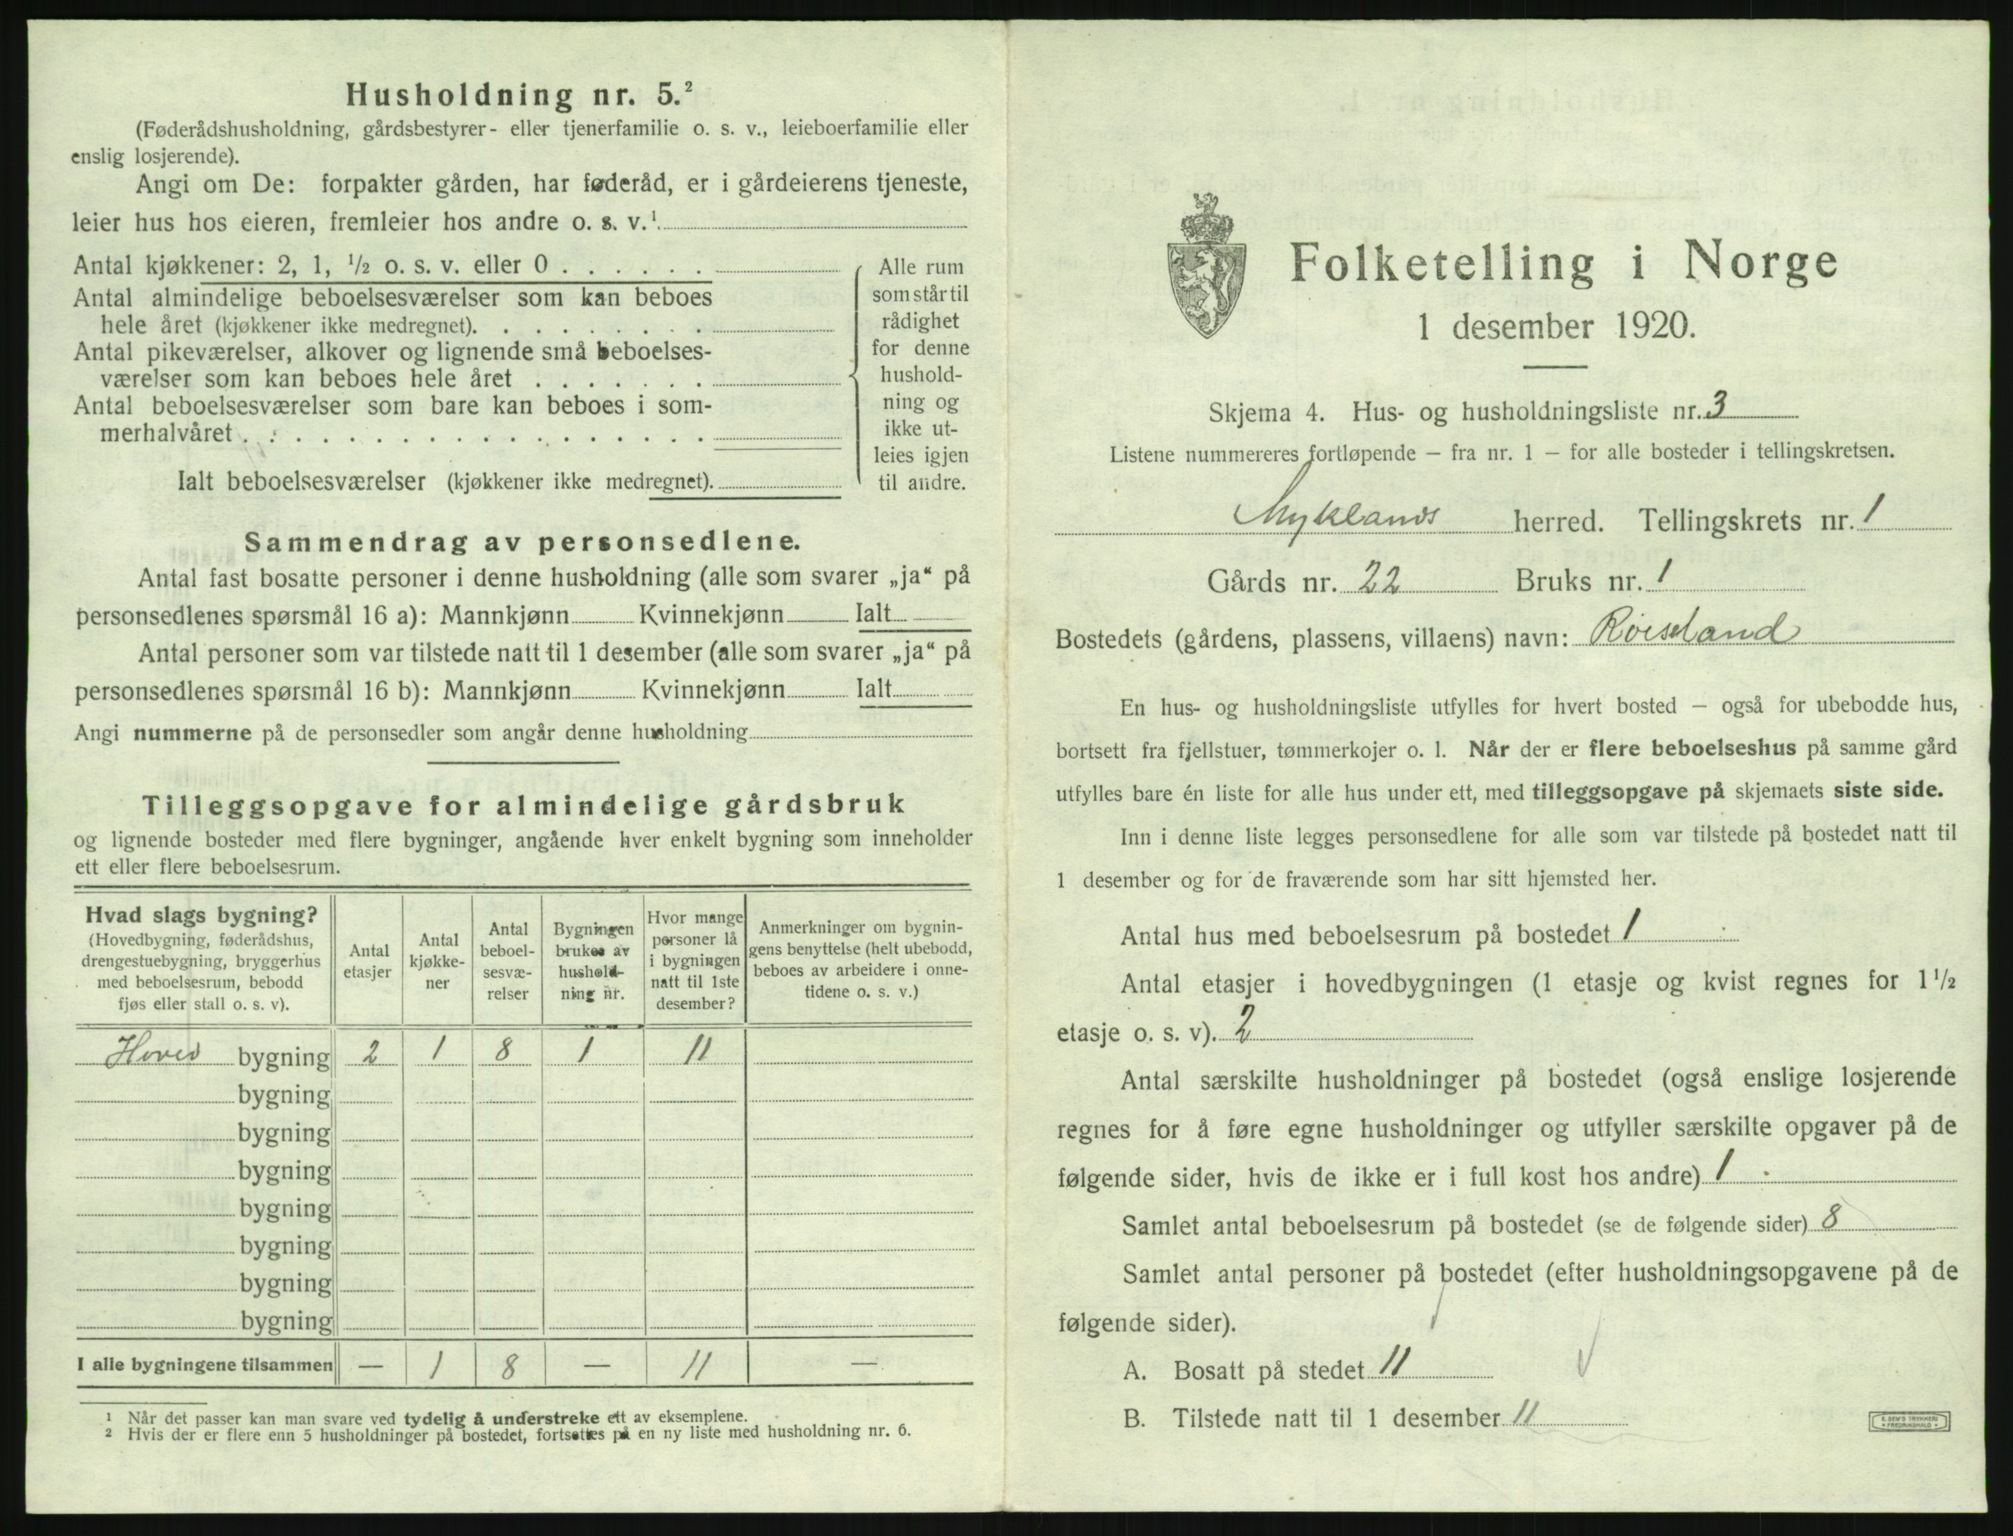 Husholdning nr. 5.²
(Føderådshusholdning, gårdsbestyrer- eller tjenerfamilie o. s. v., leieboerfamilie eller
enslig losjerende).
Angi om De: forpakter gården, har føderåd, er i gårdeierens tjeneste,
leier hus hos eieren, fremleier hos andre o. s. v.¹
Antal kjøkkener: 2, 1, ½ o. s. v. eller 0 . . . . . .
Antal almindelige beboelsesværelser som kan beboes
hele året (kjøkkener ikke medregnet). . . . . . . . .
Antal pikeværelser, alkover og lignende små beboelses-
værelser som kan beboes hele året . . . . . . .
Antal beboelsesværelser som bare kan beboes i som-
merhalvåret . . . . . . . . . . . . . . . . . .
Ialt beboelsesværelser (kjøkkener ikke medregnet).
Alle rum
som står til
rådighet
for denne
hushold-
ning og
ikke ut-
leies igjen
til andre.
Sammendrag av personsedlene.
Antal fast bosatte personer i denne husholdning (alle som svarer „ja“ på
personsedlenes spørsmål 16 a): Mannkjønn Kvinnekjønn Ialt
Antal personer som var tilstede natt til 1 desember (alle som svarer „ja“ på
personsedlenes spørsmål 16 b): Mannkjønn Kvinnekjønn Ialt
Angi nummerne på de personsedler som angår denne husholdning
Tilleggsopgave for almindelige gårdsbruk
og lignende bosteder med flere bygninger, angående hver enkelt bygning som inneholder
ett eller flere beboelsesrum.
Hvad slags bygning?
(Hovedbygning, føderådshus,
drengestuebygning, bryggerhus
med beboelsesrum, bebodd
fjøs eller stall o. s. v).
Antal
etasjer
Antal
kjøkke-
ner
Antal
beboel-
sesvæ-
relser
Bygningen
brukes av
hushold-
ning nr.
Hvor mange
personer lå
i bygningen
natt til 1ste
desember?
Anmerkninger om bygnin-
gens benyttelse (helt ubebodd,
beboes av arbeidere i onne-
tidene o. s. v.)
Hoved bygning 2 1 8 1 11
bygning
bygning
bygning
bygning
bygning
bygning
bygning
I alle bygningene tilsammen — 1 8 — 11 —
¹ Når det passer kan man svare ved tydelig å understreke ett av eksemplene.
² Hvis der er flere enn 5 husholdninger på bostedet, fortsettes på en ny liste med husholdning nr. 6.
Folketelling i Norge
1 desember 1920.
Skjema 4. Hus- og husholdningsliste nr. 3
Listene nummereres fortløpende — fra nr. 1 — for alle bosteder i tellingskretsen.
Myklands herred. Tellingskrets nr. 1
Gårds nr. 22 Bruks nr. 1
Bostedets (gårdens, plassens, villaens) navn: Røiseland
En hus- og husholdningsliste utfylles for hvert bosted — også for ubebodde hus,
bortsett fra fjellstuer, tømmerkojer o. l. Når der er flere beboelseshus på samme gård
utfylles bare én liste for alle hus under ett, med tilleggsopgave på skjemaets siste side.
Inn i denne liste legges personsedlene for alle som var tilstede på bostedet natt til
1 desember og for de fraværende som har sitt hjemsted her.
Antal hus med beboelsesrum på bostedet 1
Antal etasjer i hovedbygningen (1 etasje og kvist regnes for 1½
etasje o. s. v). 2
Antal særskilte husholdninger på bostedet (også enslige losjerende
regnes for å føre egne husholdninger og utfyller særskilte opgaver på de
følgende sider, hvis de ikke er i full kost hos andre) 1
Samlet antal beboelsesrum på bostedet (se de følgende sider) 8
Samlet antal personer på bostedet (efter husholdningsopgavene på de
følgende sider).
A. Bosatt på stedet 11
B. Tilstede natt til 1 desember 11